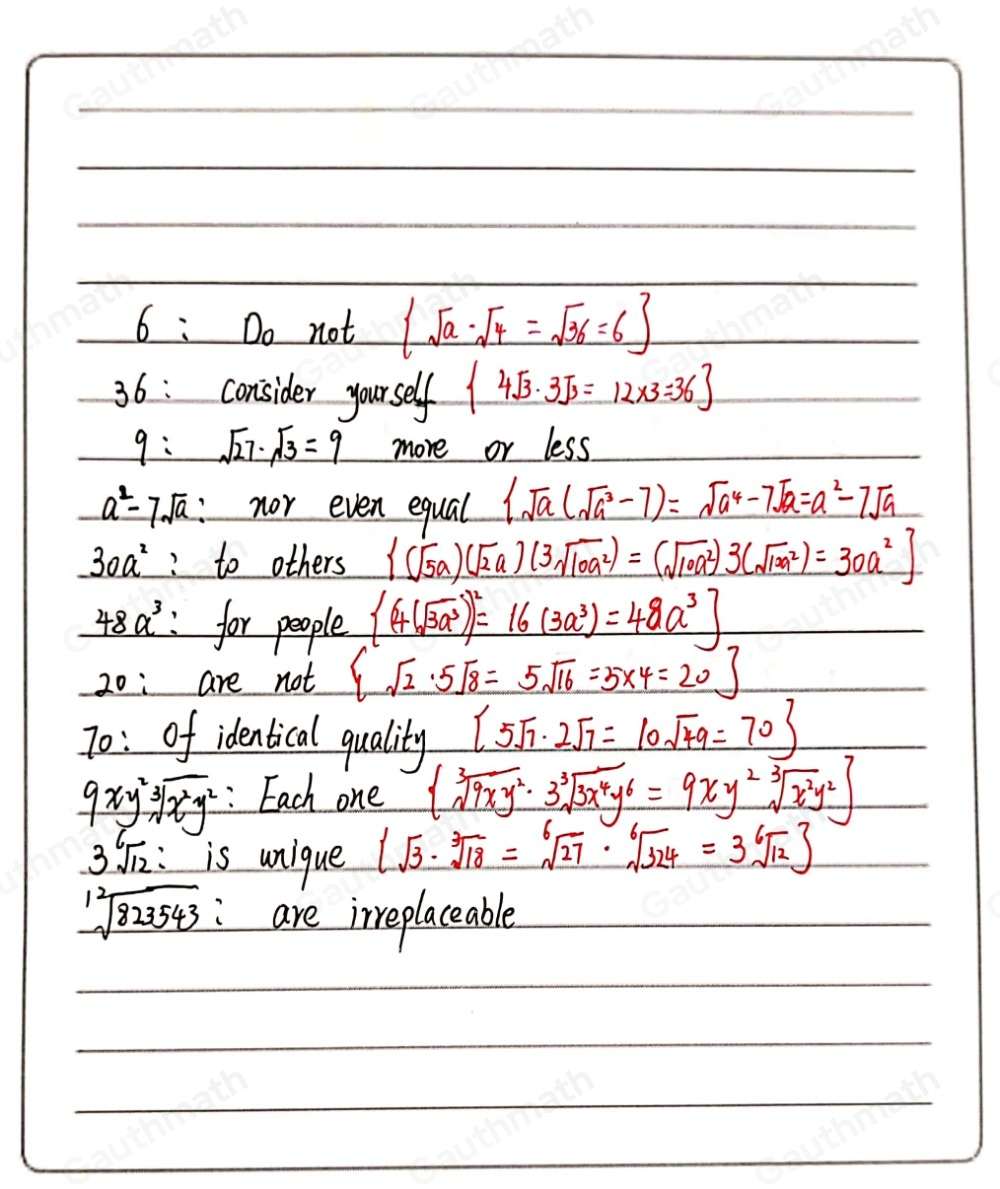 6 : Do not { √a · √4 = √36 = 6 }
36 : consider yourself { 4√3 · 3√3 = 12×3=36 }
9 : √27 · √3 = 9 more or less
a² - 7√a : nor even equal { √a (√a³ - 7) = √a⁴ - 7√a = a² - 7√a
30a² : to others { (√5a)(√2a)(3√10a²) = (√10a²) 3(√10a²) = 30a² }
48a³ : for people { (4(√3a³))² = 16 (3a³) = 48a³ }
20 : are not { √2 · 5√8 = 5√16 = 5×4 = 20 }
70 : Of identical quality { 5√7 · 2√7 = 10√49 = 70 }
9xy² ∛x²y² : Each one { ∛9xy² · 3∛3x⁴y⁶ = 9xy² ∛x²y² }
3 ⁶√12 : is unique { √3 · ∛18 = ⁶√27 · ⁶√324 = 3 ⁶√12 }
¹²√823543 : are irreplaceable